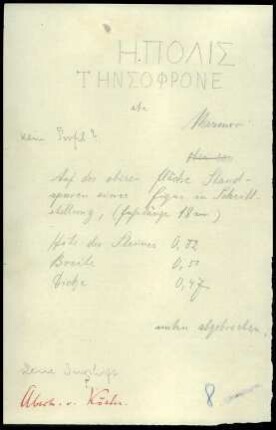 Η.ΠΟΛΙΣ
ΤΗΝΣΟΦΡΟΝΕ
Kein Profil?
Marmor.
Auf der oberen Fläche Stand-
spuren einer Figur in Schritt-
stellung, (Fußlänge 18 cm)
Höhe des Steines 0,22
Breite 0,50
Dicke 0,47
unten abgebrochen.
Keine
Abschr. v.
8